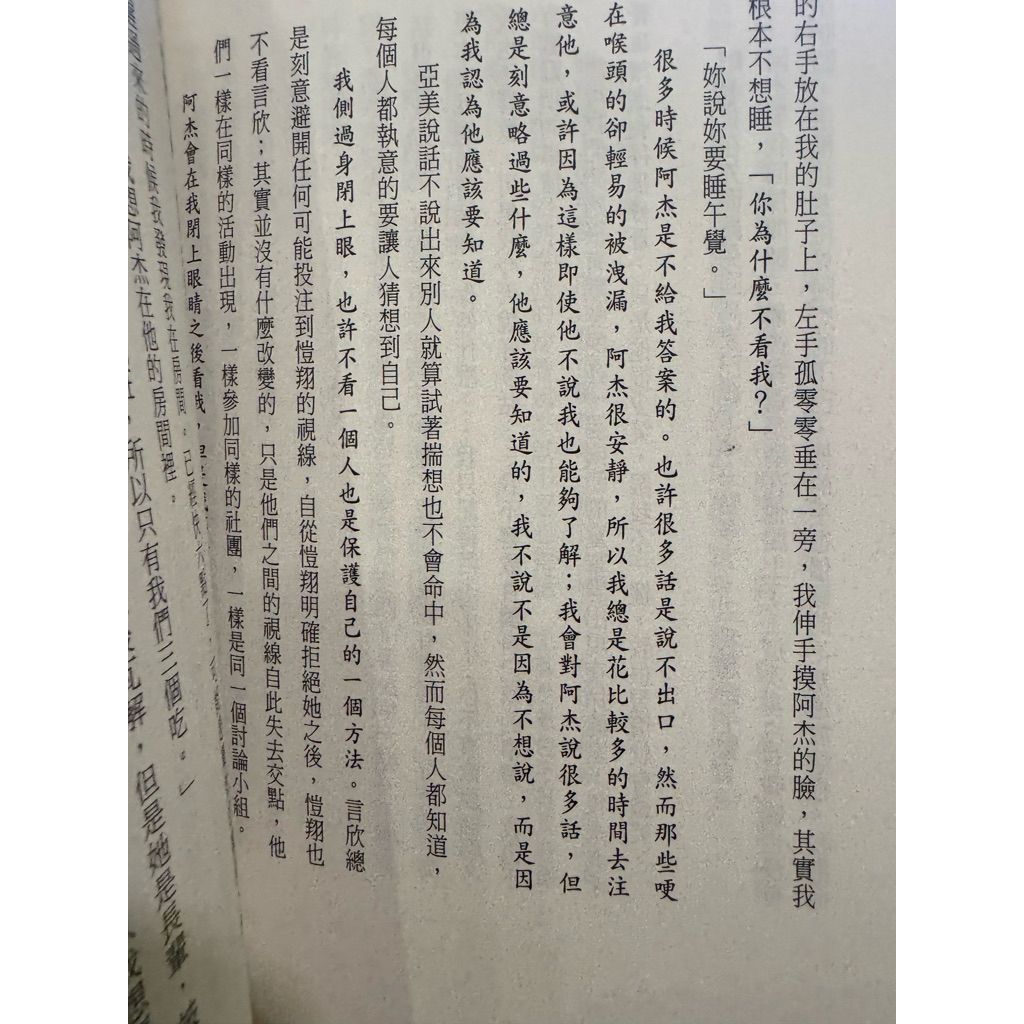 的右手放在我的肚子上，左手孤零零垂在一旁，我伸手摸阿杰的臉，其實我
根本不想睡，「你為什麼不看我？」
「妳說妳要睡午覺。」
很多時候阿杰是不給我答案的。也許很多話是說不出口，然而那些哽
在喉頭的卻輕易的被洩漏，阿杰很安靜，所以我總是花比較多的時間去注
意他，或許因為這樣即使他不說我也能夠了解；我會對阿杰說很多話，但
總是刻意略過些什麼，他應該要知道的，我不說不是因為不想說，而是因
為我認為他應該要知道。
亞美說話不說出來別人就算試著揣想也不會命中，然而每個人都知道，
每個人都執意的要讓人猜想到自己。
我側過身閉上眼，也許不看一個人也是保護自己的一個方法。言欣總
是刻意避開任何可能投注到愷翔的視線，自從愷翔明確拒絕她之後，愷翔也
不看言欣；其實並沒有什麼改變的，只是他們之間的視線自此失去交點，他
們一樣在同樣的活動出現，一樣參加同樣的社團，一樣是同一個討論小組。
阿杰會在我閉上眼睛之後看我，
我發現我在房間。已經
阿杰在他的房間裡。
所以只有我們三個吃。」
但是她是長輩，